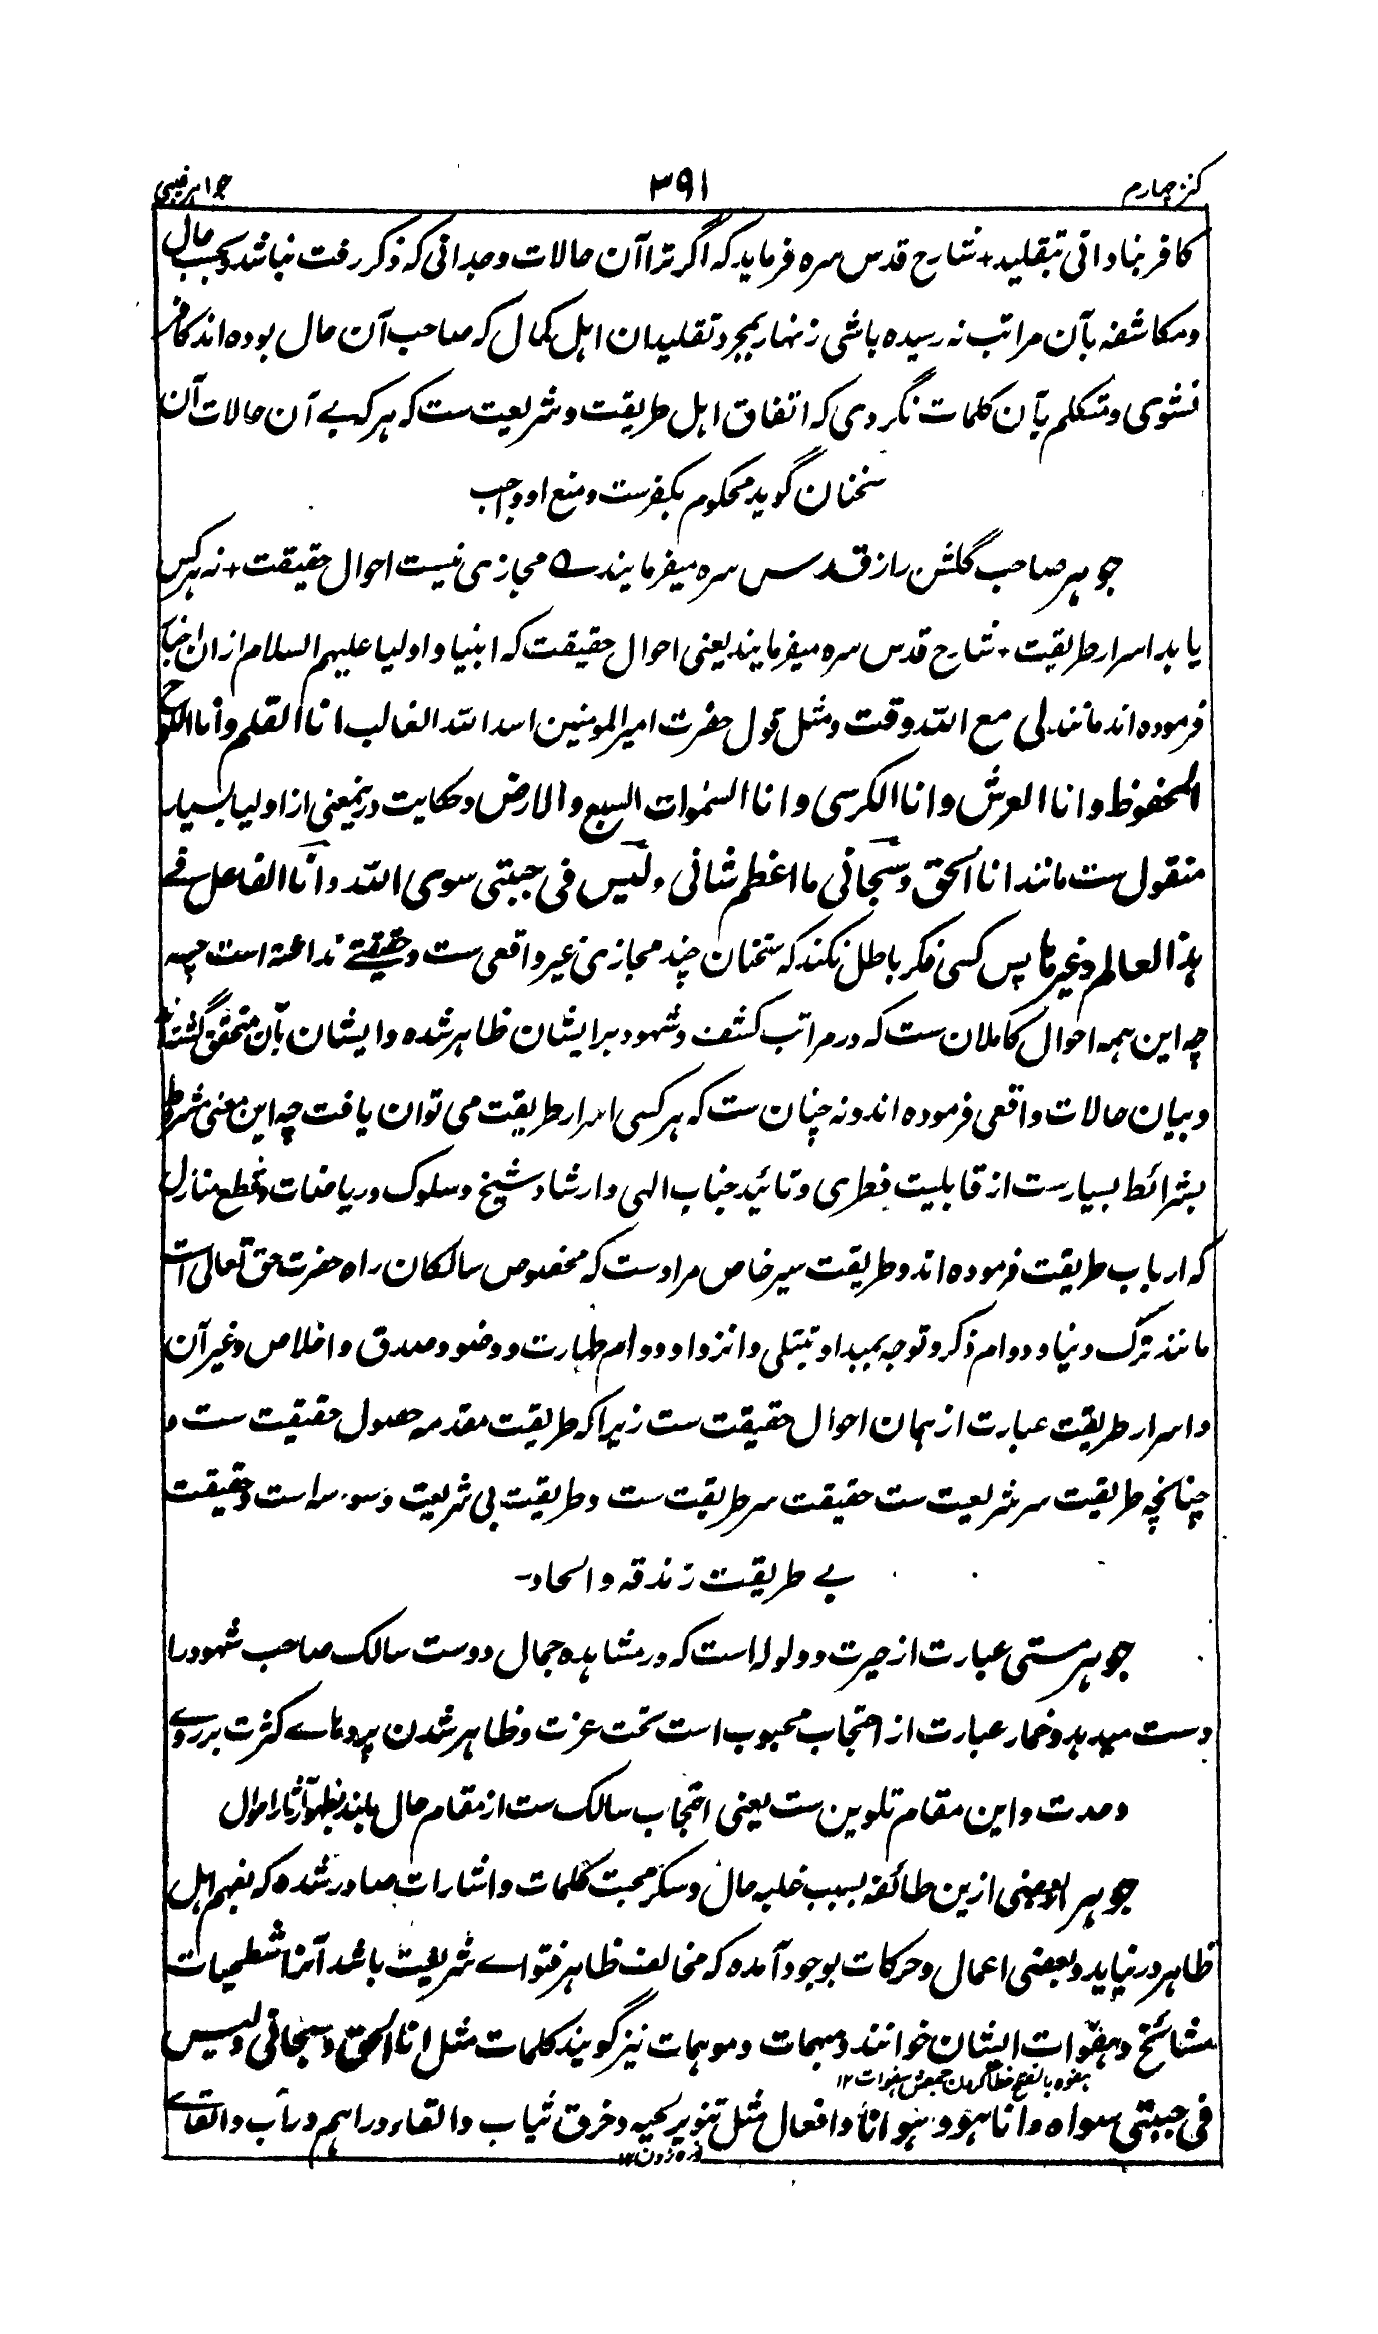 کنز چهارم
۳۹۱
جواهر غیبی
کافر بنادانی بتقلید + شارح قدس سره فرماید که اگر ترا آن حالات وجدانی که ذکر رفت نباشد و بحسب حال
و مکاشفه بآن مراتب نه رسیده باشی زنهار بمجرد تقلیدان اهل کمال که صاحب آن حال بوده اند کافر
نشوی و متکلم بآن کلمات نگردی که اتفاق اهل طریقت و شریعت ست که هر که بے آن حالات آن
سخنان گوید محکوم بکفرست و منع او واجب
جوهر صاحب گلشن راز قدس سره میفرمایند ے مجازی نیست احوال حقیقت + نه هر کس
یابد اسرار طریقت + شارح قدس سره میفرمایند یعنی احوال حقیقت که انبیا و اولیا علیهم السلام ازان اخبار
فرموده اند مانند لی مع الله وقت و مثل قول حضرت امیر المومنین اسد الله الغالب انا القلم و انا اللوح
المحفوظ و انا العرش و انا الکرسی و انا السموات السبع و الارض و حکایت درینمعنی از اولیا بسیار
منقول ست مانند انا الحق و سبحانی ما اعظم شانی و لیس فی جبتی سوی الله و انا الفاعل فے
هذا العالم و غیرها پس کسی فکر باطل نکند که سخنان چند مجازی غیر واقعی ست و حقیقتے نداشته است چه
چه این همه احوال کاملان ست که در مراتب کشف و شهود برایشان ظاهر شده و ایشان بآن متحقق گشته اند
و بیان حالات واقعی فرموده اند و نه چنان ست که هر کسی اسرار طریقت می توان یافت چه این معنی مشروط
بشرائط بسیارست از قابلیت فطری و تائید جناب الهی و ارشاد شیخ و سلوک و ریاضات و قطع منازل
که ارباب طریقت فرموده اند و طریقت سیر خاص مرادست که مخصوص سالکان راه حضرت حق تعالی است
مانند ترک دنیا و دوام ذکر و توجه بمبدا و تبتلی و انزوا و دوام طهارت و وضو و صدق و اخلاص و غیر آن
و اسرار طریقت عبارت از همان احوال حقیقت ست زیرا که طریقت مقدمه حصول حقیقت ست و
چنانچه طریقت سر شریعت ست حقیقت سر طریقت ست و طریقت بی شریعت وسوسه است و حقیقت
بے طریقت زندقه و الحاد-
جوهر مستی عبارت از حیرت و ولوله است که در مشاهده جمال دوست سالک صاحب شهود را
دست میدهد و خمار عبارت از احتجاب محبوب است تحت عزت و ظاهر شدن پردهاے کثرت بر روے
وحدت و این مقام تلوین ست یعنی احتجاب سالک ست از مقام حال بلند بظهور آثار احوال
جوهر بعضی ازین طائفه بسبب غلبه حال و سکر محبت کلمات و اشارات صادر شده که بفهم اهل
ظاهر در نیاید و بعضی اعمال و حرکات بوجود آمده که مخالف ظاهر فتواے شریعت باشد آنرا شطحیات
مشائخ و هفوات ایشان خوانند و مبهمات و موهمات نیز گویند کلمات مثل انا الحق و سبحانی و لیس
هفوه بالفتح خطا کردن جمعش هفوات ۱۲
فی جبتی سواه و انا هو و هو انا و افعال مثل تنویر لحیه و خرق ثیاب و القاء دراهم در آب و القاے
نوره زدن ۱۲